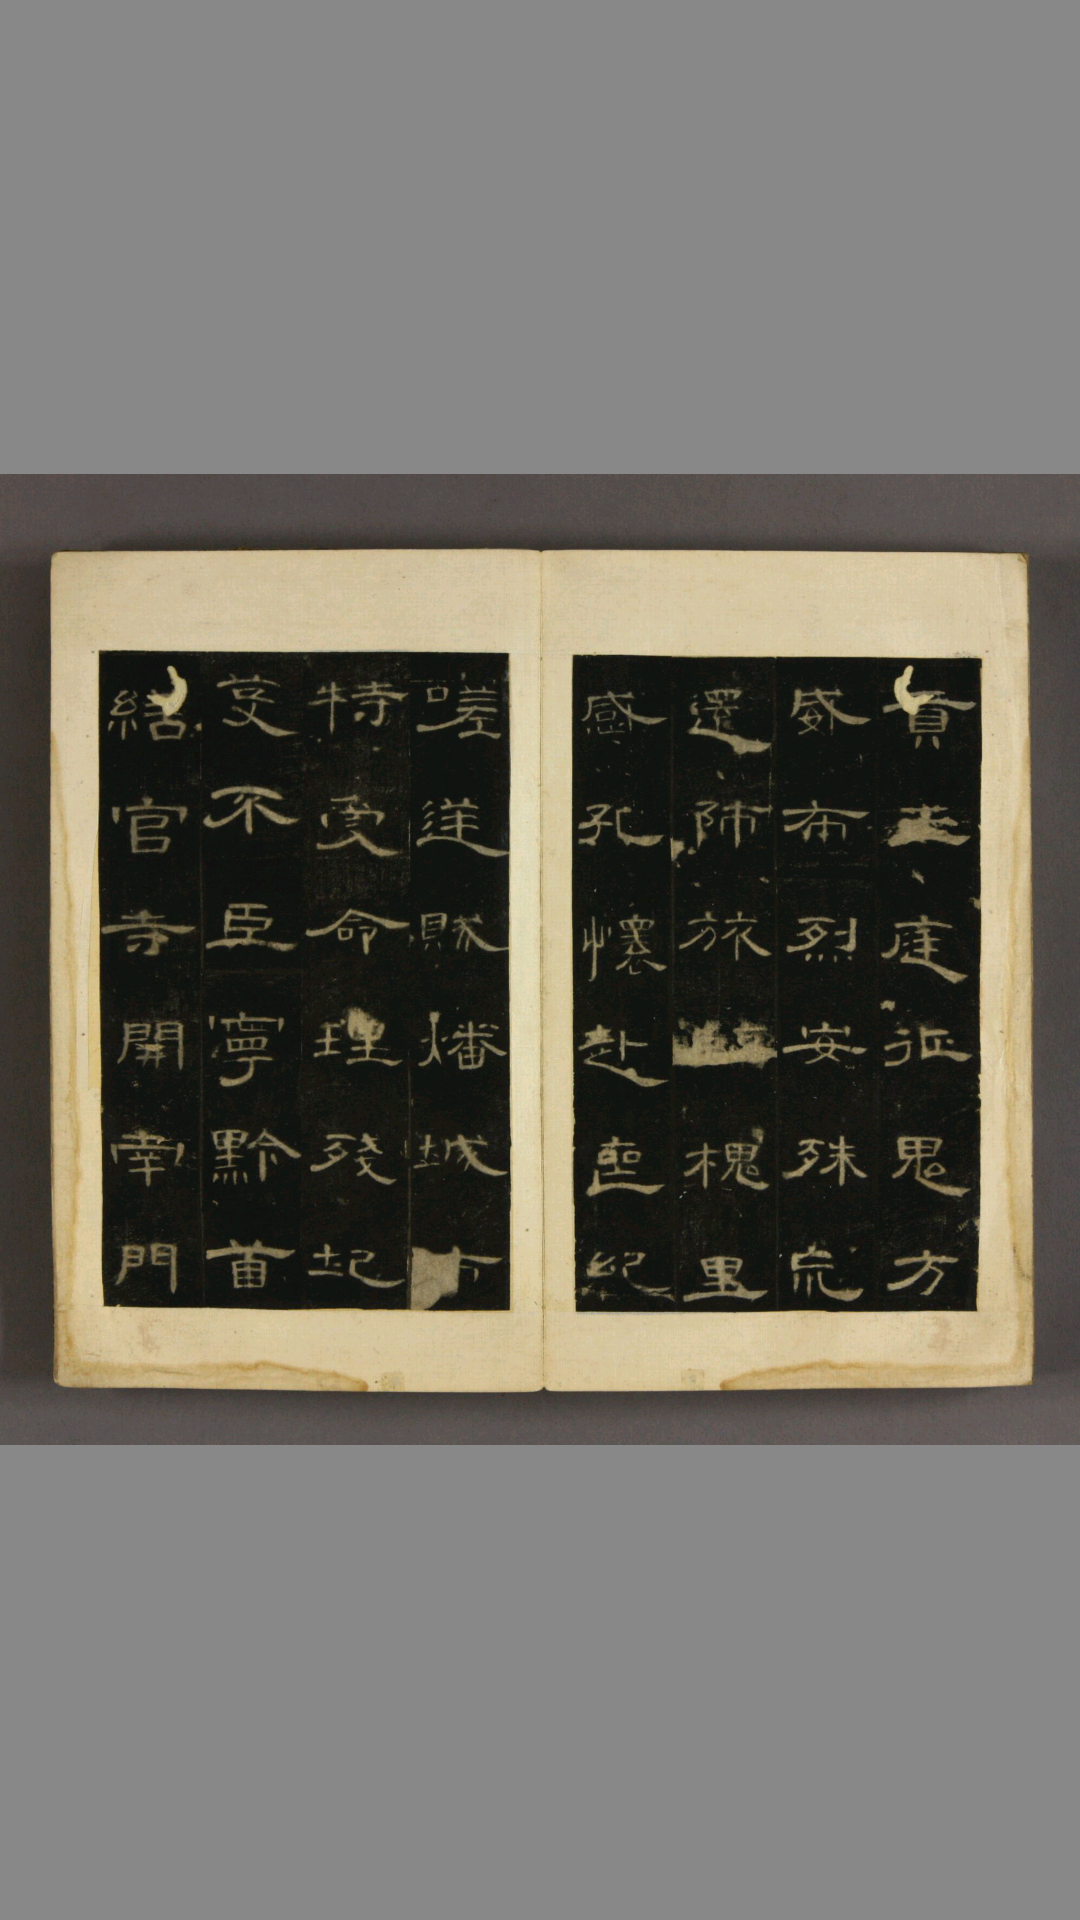 貢庭征鬼方
威布烈安殊荒
還師旅槐里
感孔懷赴喪紀
嗟逆賊燔城市
特受命理殘圮
芟不臣寧黔首
繕官寺開南門